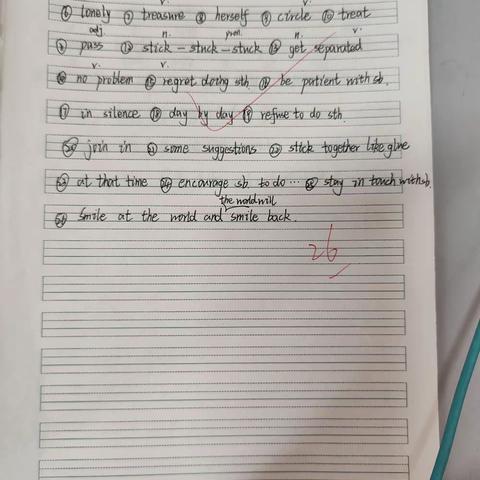 ⑥ lonely ⑦ treasure ⑧ herself ⑨ circle ⑩ treat
adj v. pron. n. v.
pass ⑫ stick - stuck - stuck ⑬ get separated
v. v.
no problem ⑮ regret doing sth. ⑯ be patient with sb.
⑰ in silence ⑱ day by day ⑲ refuse to do sth.
⑳ join in ㉑ some suggestions ㉒ stick together like glue
㉓ at that time ㉔ encourage sb. to do … ㉕ stay in touch with sb.
the world will
㉖ Smile at the world and smile back.
26